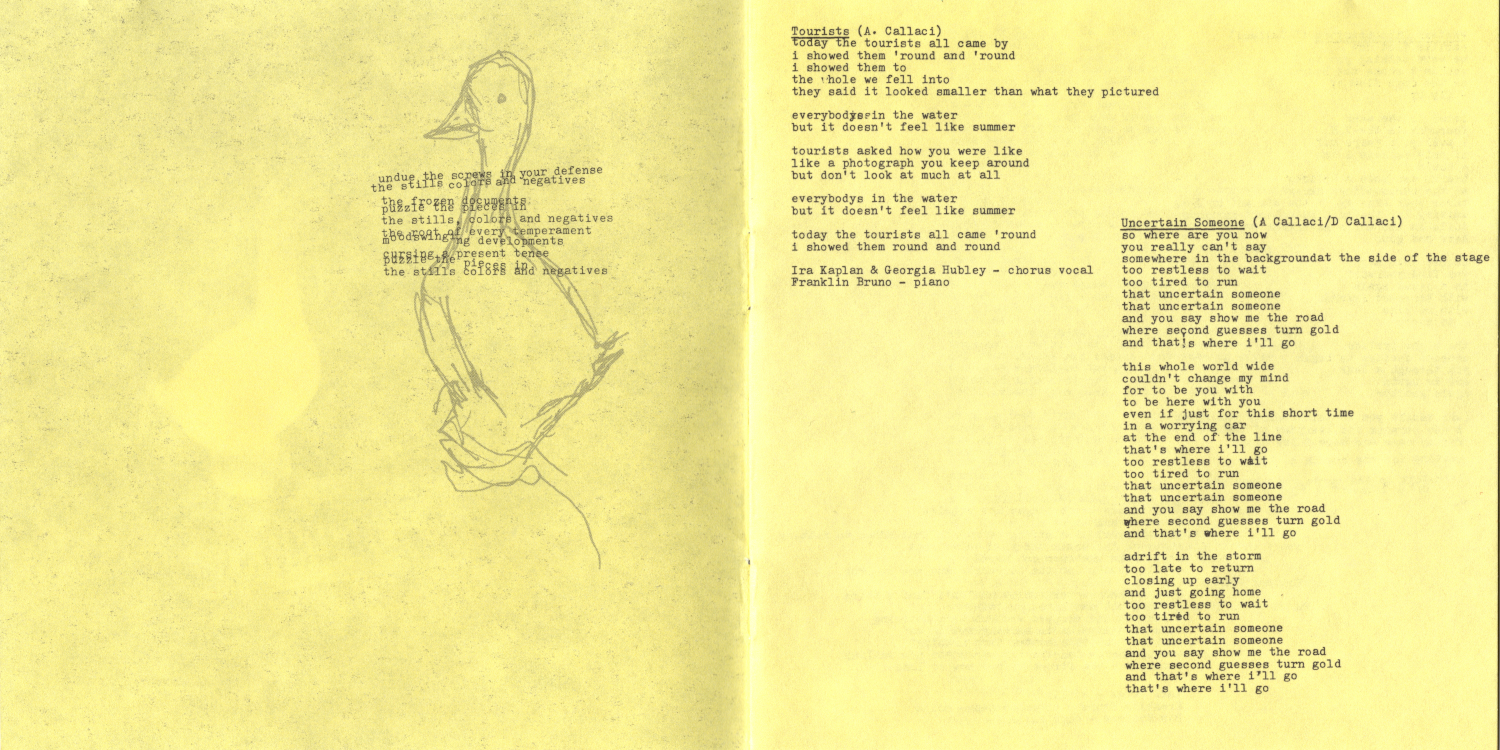 undue the screws in your defense
the stills colors and negatives
the frozen documents
puzzle the pieces in
the stills, colors and negatives
the root of every temperament
moodswinging developments
cursing a present tense
puzzle the pieces in
the stills colors and negatives
Tourists (A. Callaci)
today the tourists all came by
i showed them 'round and 'round
i showed them to
the whole we fell into
they said it looked smaller than what they pictured
everybodys in the water
but it doesn't feel like summer
tourists asked how you were like
like a photograph you keep around
but don't look at much at all
everybodys in the water
but it doesn't feel like summer
today the tourists all came 'round
i showed them round and round
Ira Kaplan & Georgia Hubley - chorus vocal
Franklin Bruno - piano
Uncertain Someone (A Callaci/D Callaci)
so where are you now
you really can't say
somewhere in the backgroundat the side of the stage
too restless to wait
too tired to run
that uncertain someone
that uncertain someone
and you say show me the road
where second guesses turn gold
and that's where i'll go
this whole world wide
couldn't change my mind
for to be you with
to be here with you
even if just for this short time
in a worrying car
at the end of the line
that's where i'll go
too restless to wait
too tired to run
that uncertain someone
that uncertain someone
and you say show me the road
where second guesses turn gold
and that's where i'll go
adrift in the storm
too late to return
closing up early
and just going home
too restless to wait
too tired to run
that uncertain someone
that uncertain someone
and you say show me the road
where second guesses turn gold
and that's where i'll go
that's where i'll go